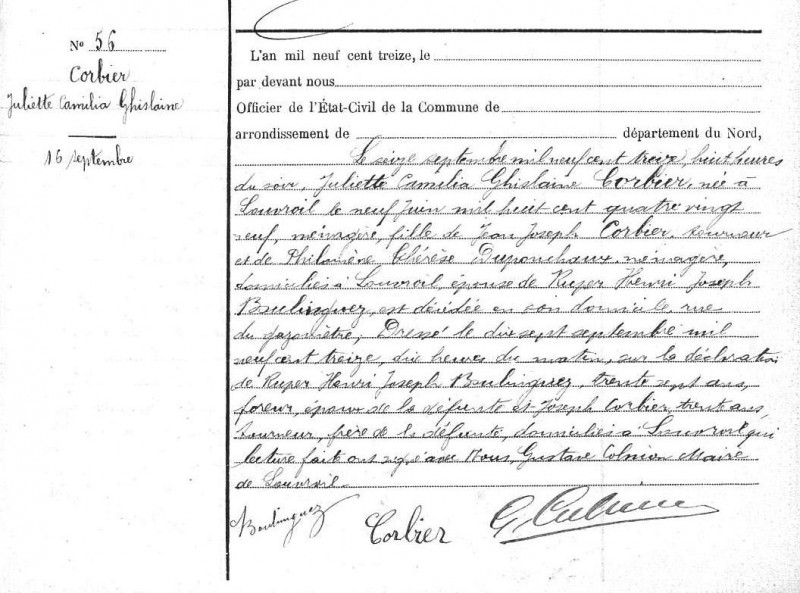 N° 56
Corbier
Juliette Camilia Ghislaine
16 septembre
L'an mil neuf cent treize, le
par devant nous
Officier de l'État-Civil de la Commune de
arrondissement de département du Nord,
Le seize septembre mil neuf cent treize, huit heures
du soir, Juliette Camilia Ghislaine Corbier, née à
Louvroil le neuf Juin mil huit cent quatre vingt
neuf, ménagère, fille de Jean Joseph Corbier, tourneur
et de Philomène Thérèse Duponchaux, ménagère,
domiciliés à Louvroil, épouse de Ruper Henri Joseph
Boulinguez, est décédée en son domicile rue
du gazomètre, Dressé le dix sept septembre mil
neuf cent treize, dix heures du matin, sur la déclaration
de Ruper Henri Joseph Boulinguez, trente sept ans,
foreur, époux de la défunte et Joseph Corbier, trente ans,
tourneur, frère de la défunte, domiciliés à Louvroil qui
lecture faite ont signé avec Nous, Gustave Maire
de Louvroil.
Boulinguez Corbier G.